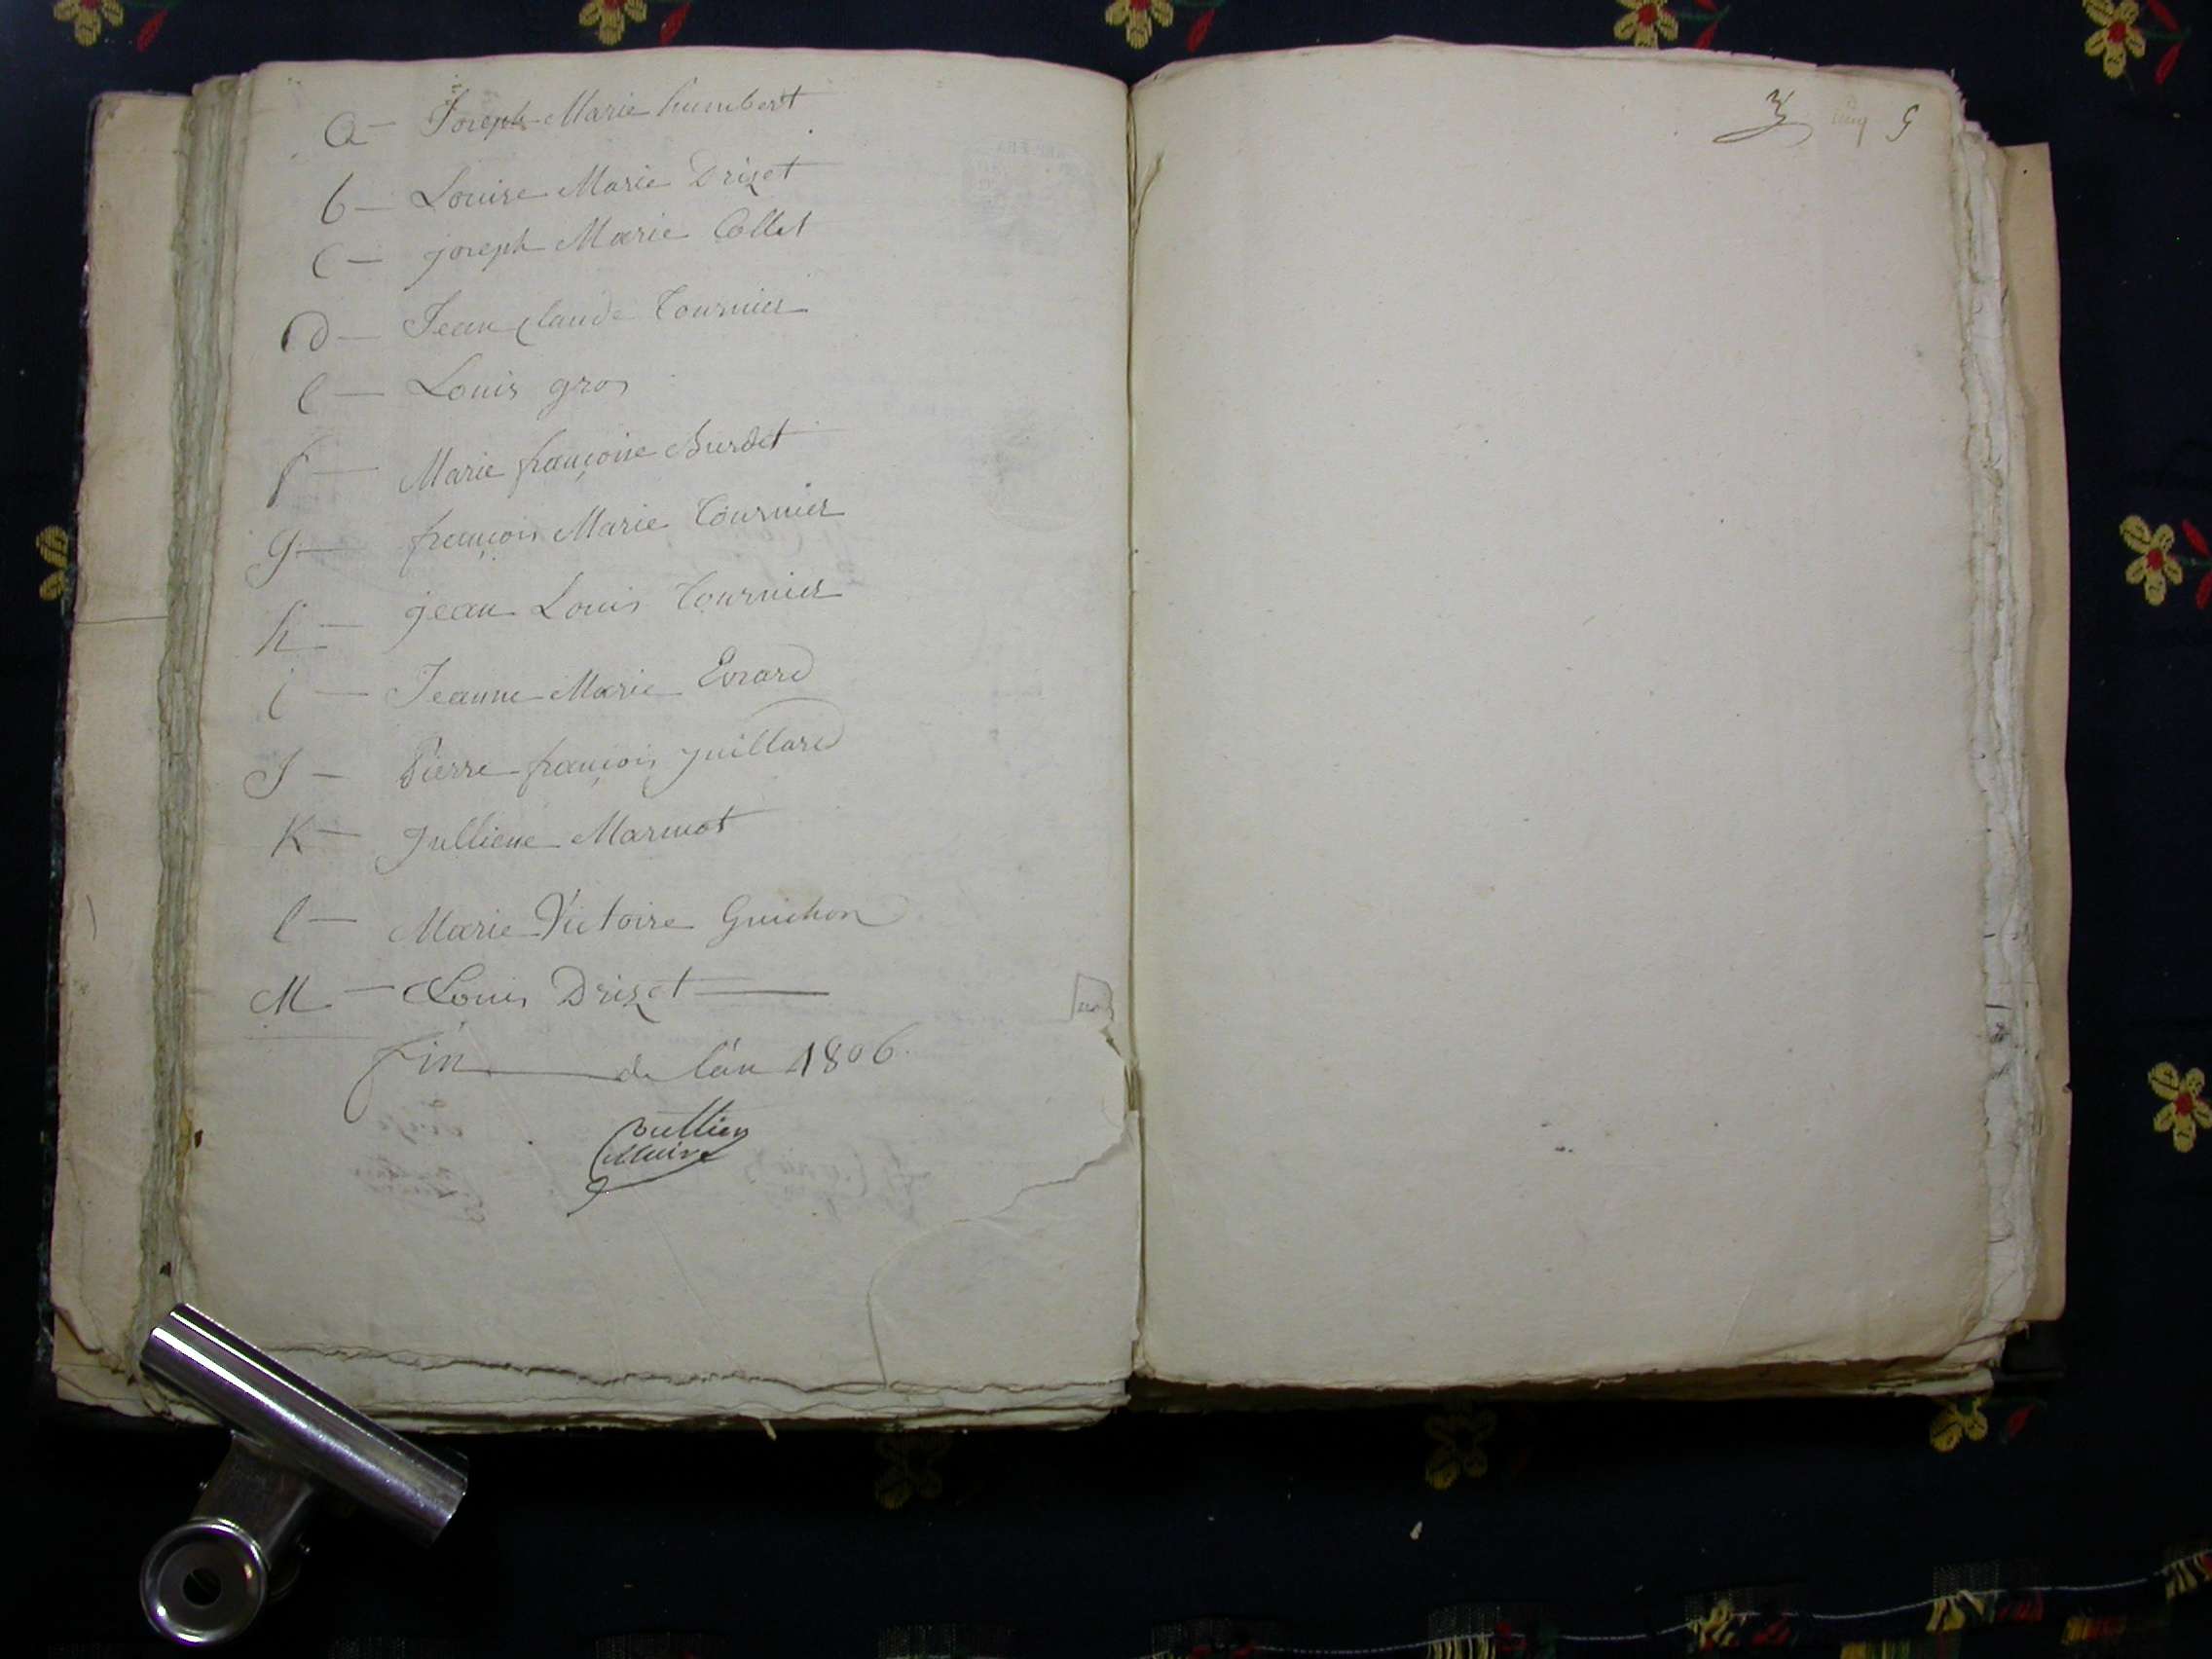 a — Joseph Marie humbert
b — Louise Marie Drizet
C — joseph Marie Collet
D — Jean claude Tournier
e — Louis gros
f — Marie françoise Burdet
g — françois Marie Tournier
h — jean Louis Tournier
i — Jeanne Marie Evrard
J — Pierre françois juillard
K — Julliene Marmot
l — Marie Victoire Guichon
M — Louis Drizet
fin de l'an 1806
Maire